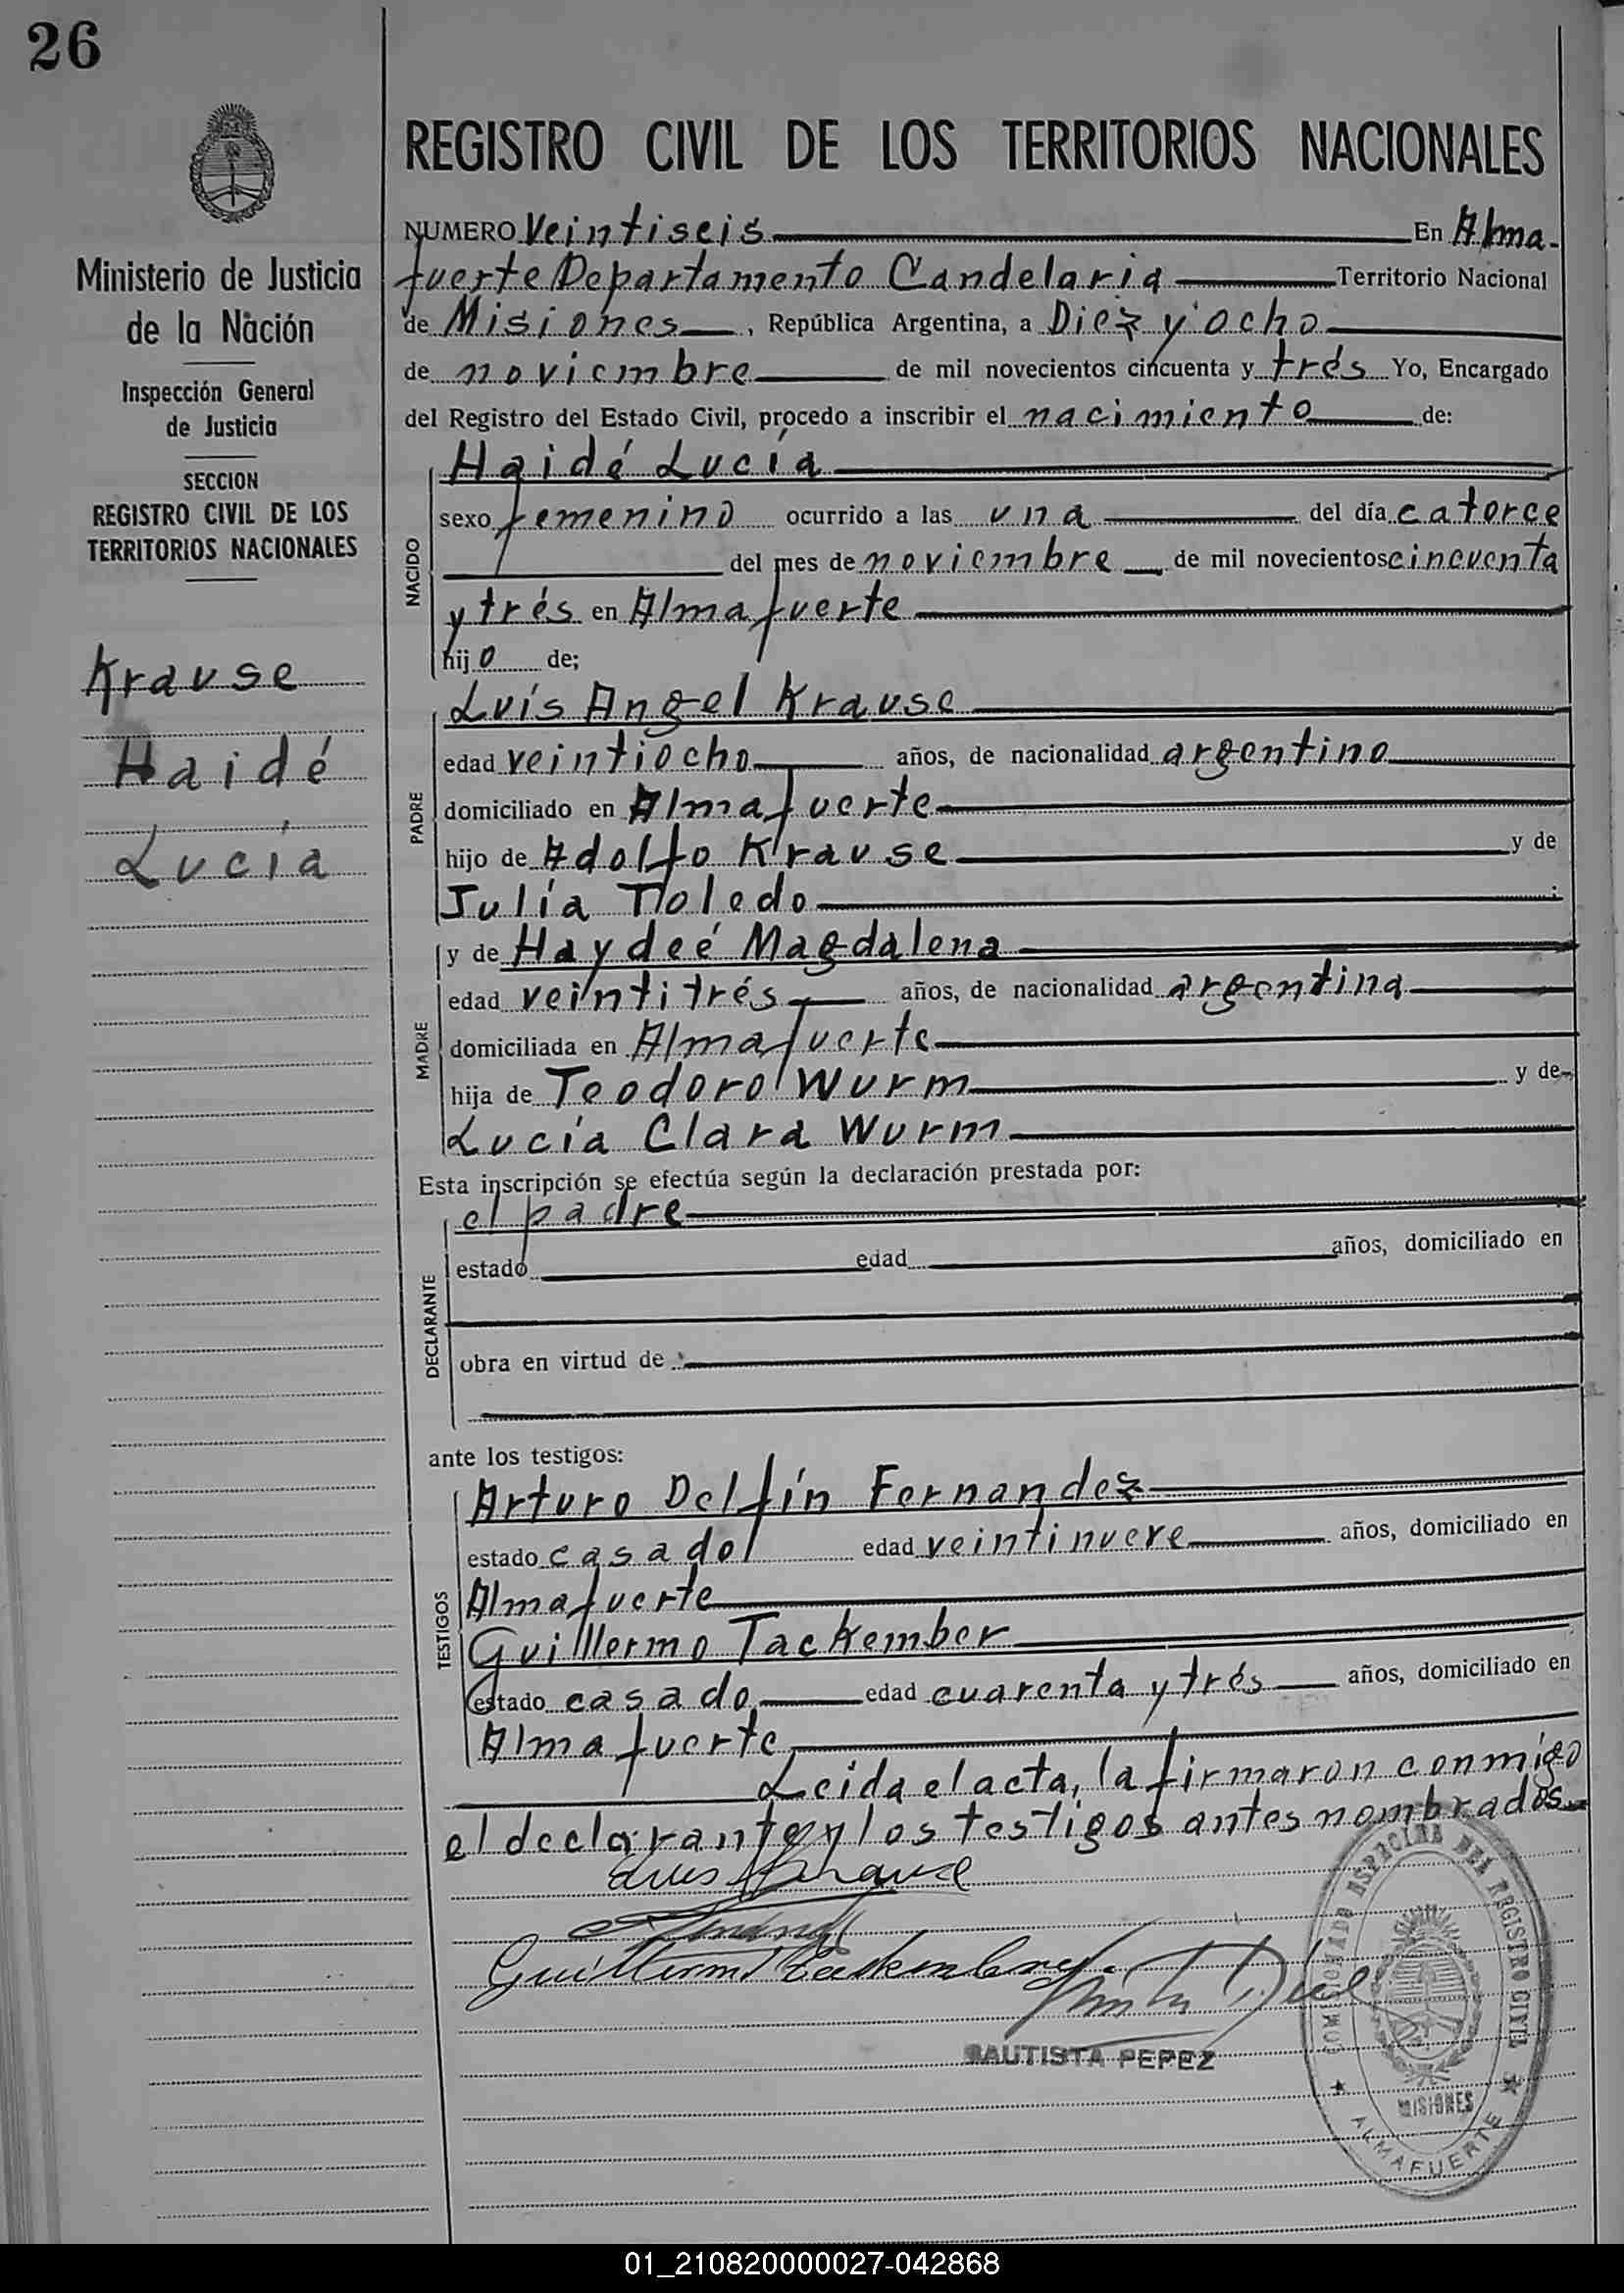 26
REGISTRO CIVIL DE LOS TERRITORIOS NACIONALES
Ministerio de Justicia
de la Nación
Inspección General
de Justicia
SECCION
REGISTRO CIVIL DE LOS
TERRITORIOS NACIONALES
Krause
Haidé
Lucía
NUMERO Veintiseis En Alma-
fuerte Departamento Candelaria Territorio Nacional
de Misiones, República Argentina, a Diez y ocho
de noviembre de mil novecientos cincuenta y trés Yo, Encargado
del Registro del Estado Civil, procedo a inscribir el nacimiento de:
NACIDO
Haidé Lucía
sexo femenino ocurrido a las una del día catorce
del mes de noviembre de mil novecientos cincuenta
y trés en Almafuerte
hijo de;
PADRE
Luís Angel Krause
edad veintiocho años, de nacionalidad argentino
domiciliado en Almafuerte
hijo de Adolfo Krause y de
Julia Toledo ;
MADRE
y de Haydeé Magdalena
edad veintitrés años, de nacionalidad argentina
domiciliada en Almafuerte
hija de Teodoro Wurm y de
Lucía Clara Wurm
Esta inscripción se efectúa según la declaración prestada por:
DECLARANTE
el padre
estado edad años, domiciliado en
obra en virtud de
ante los testigos:
TESTIGOS
Arturo Delfín Fernandez
estado casado edad veintinueve años, domiciliado en
Almafuerte
Guillermo Tackember
estado casado edad cuarenta y trés años, domiciliado en
Almafuerte
Leida el acta, la firmaron conmigo
el declarante y los testigos antes nombrados
Luis A Krause
Guillermo
BAUTISTA PEPEZ
DEL REGISTRO CIVIL
MISIONES
ALMAFUERTE
01_210820000027-042868